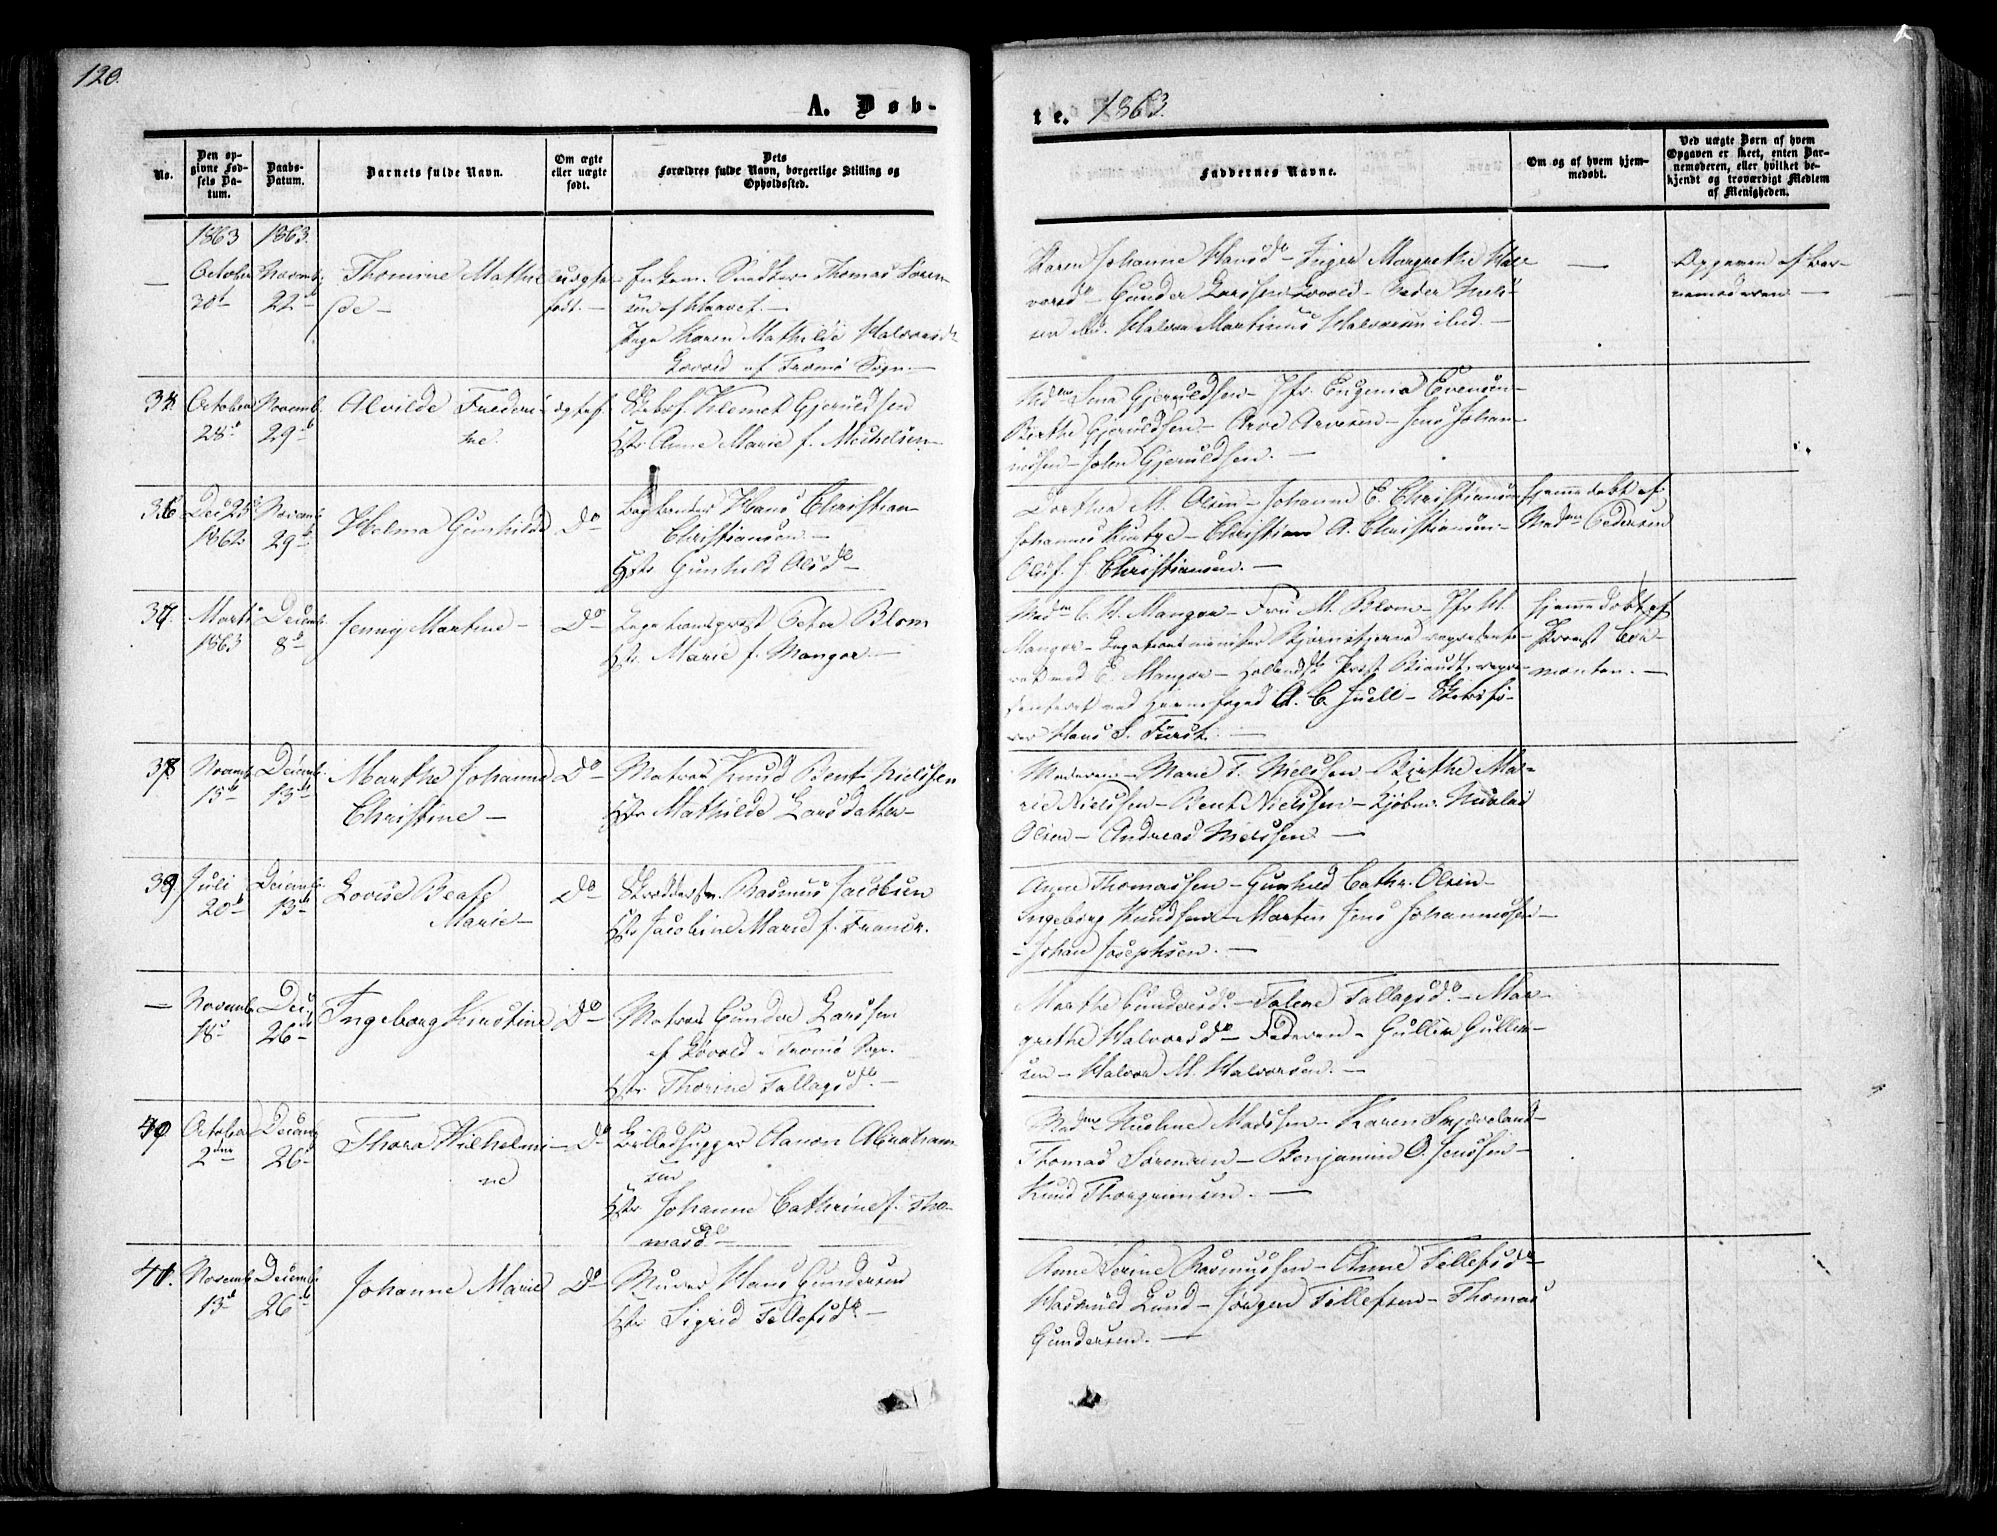 120.
A. Døb-
te. 1863.
No.
Den op-
givne Fød-
sels Da-
tum.
Daabs-
Datum.
Barnets fulde Navn.
Om ægte
eller uægte
født.
Dets
Forældres fulde Navn, borgerlige Stilling og
Opholdssted.
Faddernes Navne.
Om og af hvem hjem-
medøbt.
Ved uægte Børn af hvem
Opgaven er skeet, enten Bar-
nemoderen, eller hvilket be-
kjendt og troværdigt Medlem
af Menigheden.
1863 1863.
— October 30t Novemb. 22d
Thomine Mathil
de —
uægte
født. —
Enkem. Snedker Thomas Søren
sen af
Pige Karen Mathilde Halvorsdr
Løvold af Tromø Sogn. —
Karen Johanne Hansdr — Inger Margrethe Hal-
vorsdr — Gunder Larssen Løvold — Peder Niel-
sen ibd. Halvor Martinus Halvorsen ibid. —
—
Opgaven af Bar-
nemoderen —
October 28d Novemb. 29d
Alvilde Frederi-
ke.
ægtef.
Skibsf. Klemet Gjeruldsen
Hst. Anne Marie f. Michelsen.
Madm Gjeruldsen — Jfr. Eugenia Evensen —
Birthe Gjeruldsen — Arve Arvesen — Jens Johan-
nesen — John Gjeruldsen. —
36 Dec 25d 1862 Novemb. 29d
Helma Gunhilde
Do
Hans Christian
Christiansen —
Hst. Gunhild Olsdr —
Dorthea M. Olsen — Johanne E. Christiansen
Johannes — Christian A. Christiansen —
Oluf J. Christiansen. —
Hjemmedøbt af
Madme Pedersen
37. Marti 1863 Decemb. 8d
Jenny Martine —
Do
Peter Blom
Hst. Marie f. Mangor. —
Madm C. M. Mangor — Fru M. Blom — Jfr M.
Mangor — Legationsminister Bjørnstjerna repræsente-
ret ved E. Mangor — Prost Brandt, repræ-
senteret ved A. C. Juell — Skibsfø-
rer Hans S. Fürst. —
Hjemmedøbt af
Provst
—
38 Novemb. 15d Decemb. 13d
Marthe Johanne
Christine —
Do
Matros Knud Bent Nielssen
Hst. Mathilde Larsdatter —
Moderen — Marie T. Nielssen — Birthe Ma-
rie Nielssen — Bent Nielssen — Kjøbm. Nicolai
Olsen — Andreas Nielssen. —
39. Juli 20d Decemb. 13d
Lovise Beate
Marie —
Do
Rasmus Jacobsen
Hst. Jacobine Marie f.
Anne Thomassen — Gunhild Cathr. Olsen —
Ingeborg Knudsen — Martin Jens Johannessen —
— Johan Josephsen. —
— Novemb. 18d Dec. 26d
Ingeborg Kirstine
Do
Matros Gunder Larssen
af Løvold i Tromø Sogn.
Hst. Thorine Tallagsdr. —
Marthe Gundersdr. — Talene Tallagsdr. — Mar-
grethe Halvorsdr. — Faderen — Gullik Gullik-
sen — Halvor M. Halvorsen. —
October 2den Decemb. 26d
Thora Wilhelmi-
ne
Do
Billedhugger Aanon Abraham
sen
Hst. Johanne Cathrine f. Tho-
masdr —
Madme Madssen — Karen —
Thomas Sørensen — Benjamin O. Jenssen —
Knud Thorgrimsen. —
Novemb. 13d Decemb. 26d
Johanne Marie
Do
Murer Hans Gundersen
Hst. Sigrid Tellefsdr. —
Anne Serine Rasmussen — Anne Tellefsdr —
Lund — Jørgen Tellefsen — Thomas
Gundersen. —